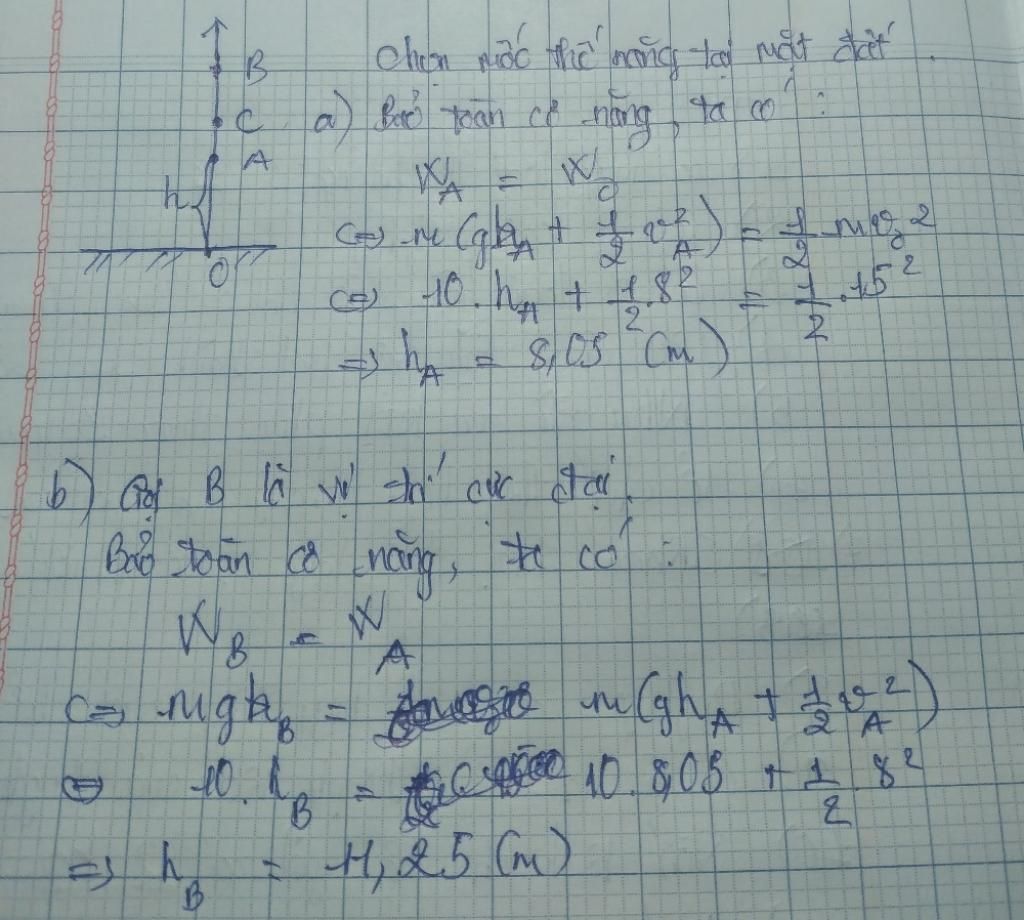 B
C
A
h
O
Chọn mốc thế năng tại mặt đất.
a) Bảo toàn cơ năng, ta có:
W_A = W_0
<=> m(gh_A + 1/2 v_A^2) = 1/2 mv_0^2
<=> 10.h_A + 1/2.8^2 = 1/2.15^2
=> h_A = 8,05 (m)
b) Gọi B là vị trí cực đại.
Bảo toàn cơ năng, ta có:
W_B = W_A
<=> mgh_B = m(gh_A + 1/2 v_A^2)
<=> 10.h_B = 10.8,05 + 1/2 . 8^2
=> h_B = 11,25 (m)